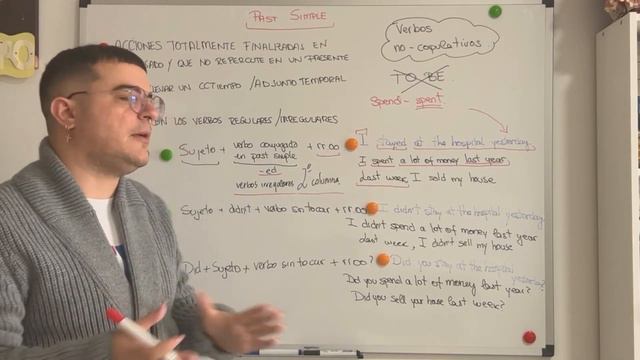 PAST SIMPLE
Verbos
no-copulativos
ACCIONES TOTALMENTE FINALIZADAS EN
Y QUE NO REPERCUTE EN UN PRESENTE
UN CCTIEMPO / ADJUNTO TEMPORAL
TO BE
Spend - spent
LOS VERBOS REGULARES / IRREGULARES
Sujeto + verbo conjugado + rroo
en past simple
-ed
verbos irregulares 2ª columna
I stayed at the hospital yesterday
I spent a lot of money last year
Last week, I sold my house
Sujeto + didn't + verbo sin tocar + rroo
I didn't stay at the hospital yesterday
I didn't spend a lot of money last year
last week, I didn't sell my house
Did + sujeto + verbo sin tocar + rroo?
Did you stay at the hospital yesterday?
Did you spend a lot of money last year?
Did you sell your house last week?